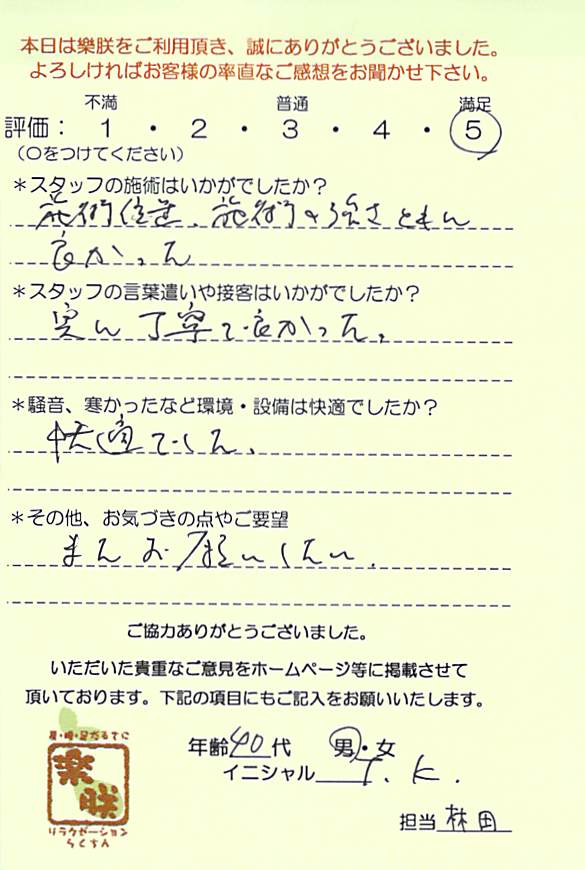 本日は樂朕をご利用頂き、誠にありがとうございました。
よろしければお客様の率直なご感想をお聞かせ下さい。
不満 普通 満足
評価： 1 ・ 2 ・ 3 ・ 4 ・ 5
（○をつけてください）
＊スタッフの施術はいかがでしたか？
施術位置、施術の強さともに
良かった
＊スタッフの言葉遣いや接客はいかがでしたか？
実に丁寧で良かった。
＊騒音、寒かったなど環境・設備は快適でしたか？
快適でした。
＊その他、お気づきの点やご要望
またお願いしたい。
ご協力ありがとうございました。
いただいた貴重なご意見をホームページ等に掲載させて
頂いております。下記の項目にもご記入をお願いいたします。
年齢 40 代 男・女
イニシャル T. K.
担当 林田
肩・腰・足かるてに
樂朕
リラクゼーション
らくちん